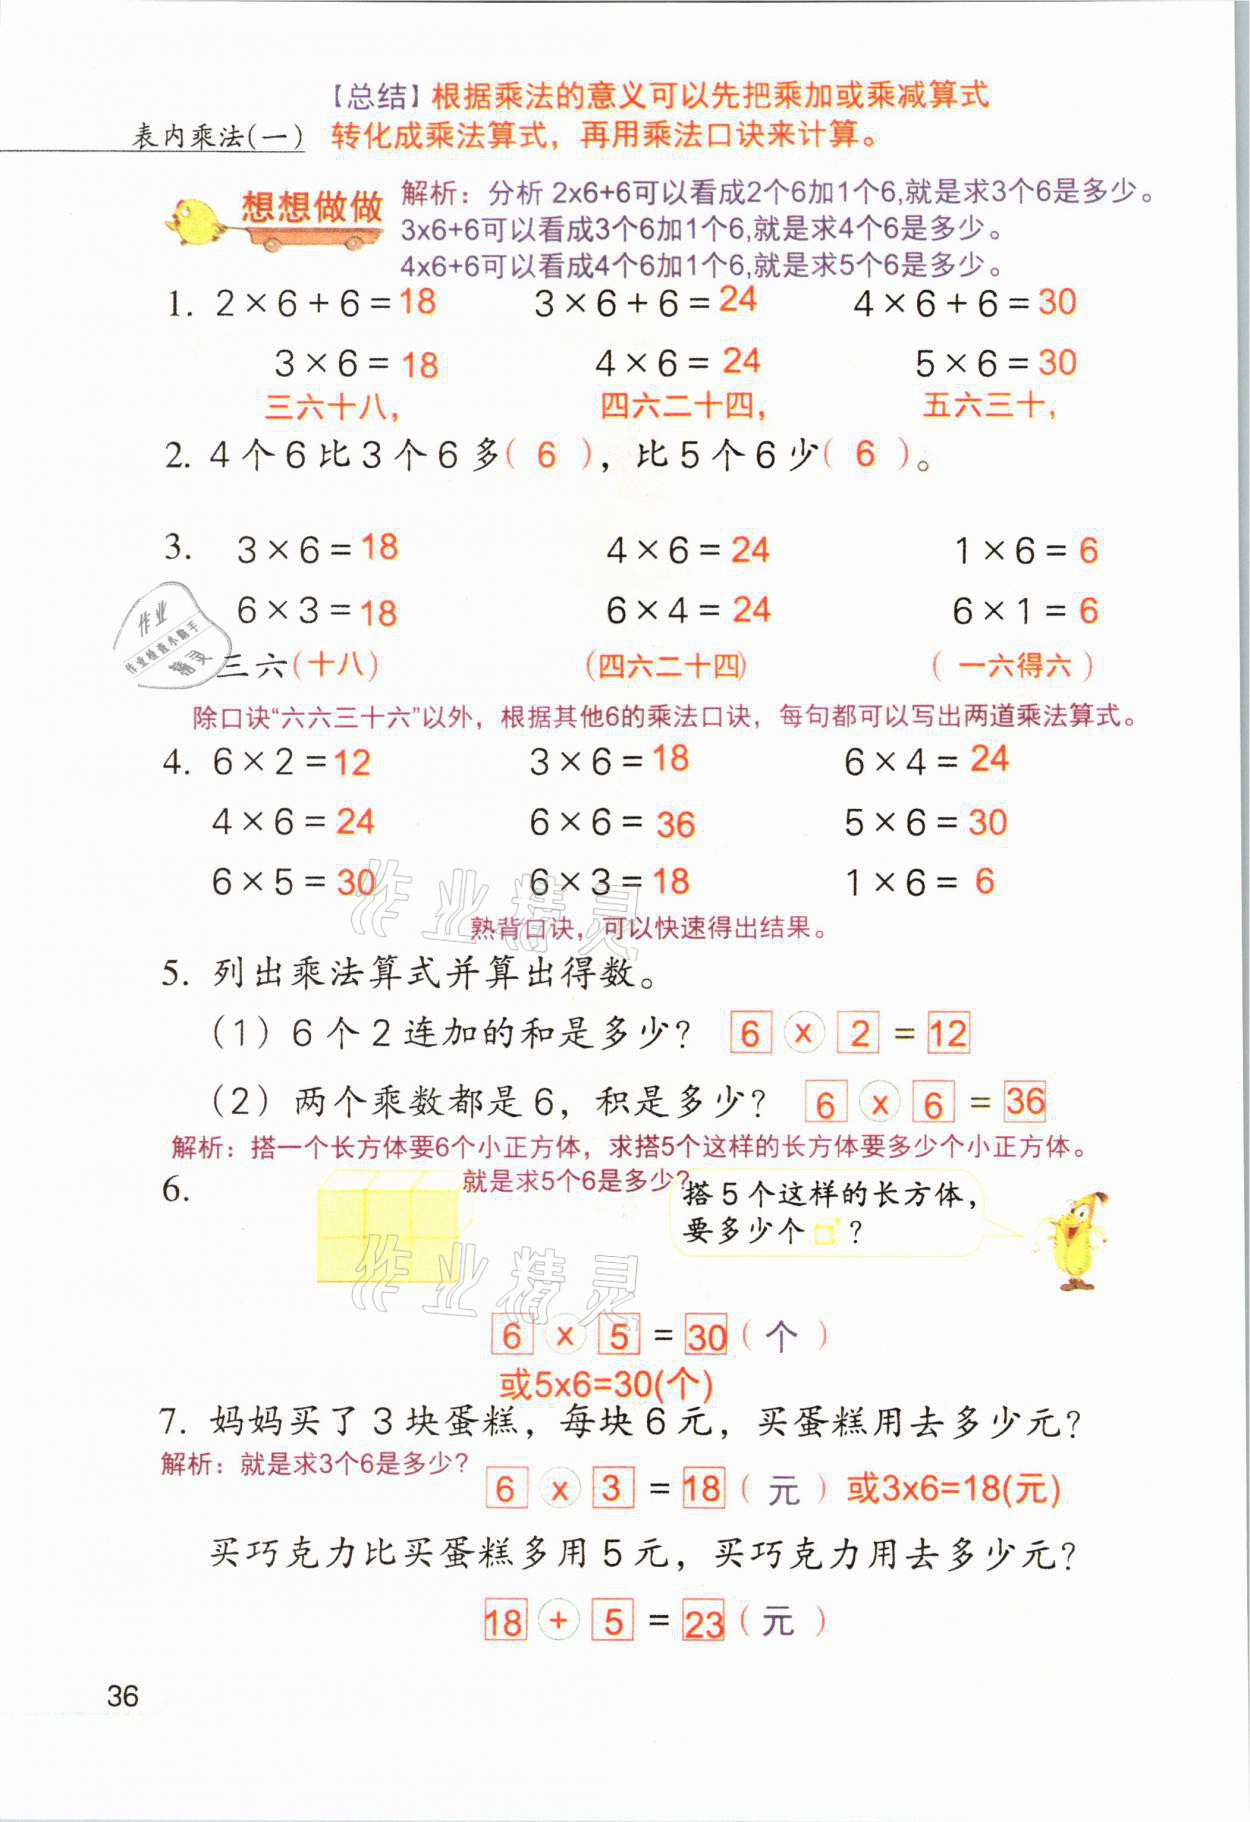 【总结】根据乘法的意义可以先把乘加或乘减算式
表内乘法(一) 转化成乘法算式，再用乘法口诀来计算。
想想做做 解析：分析 2x6+6可以看成2个6加1个6,就是求3个6是多少。
3x6+6可以看成3个6加1个6,就是求4个6是多少。
4x6+6可以看成4个6加1个6,就是求5个6是多少。
1. 2×6+6=18 3×6+6=24 4×6+6=30
3×6=18 4×6=24 5×6=30
三六十八， 四六二十四， 五六三十，
2. 4个6比3个6多( 6 )，比5个6少( 6 )。
3. 3×6=18 4×6=24 1×6=6
6×3=18 6×4=24 6×1=6
作业
作业检查小助手
精灵
三六(十八) (四六二十四) ( 一六得六 )
除口诀“六六三十六”以外，根据其他6的乘法口诀，每句都可以写出两道乘法算式。
4. 6×2=12 3×6=18 6×4=24
4×6=24 6×6=36 5×6=30
6×5=30 6×3=18 1×6=6
作业精灵
熟背口诀，可以快速得出结果。
5. 列出乘法算式并算出得数。
(1) 6个2连加的和是多少？ 6 x 2 = 12
(2) 两个乘数都是6，积是多少？ 6 x 6 = 36
解析：搭一个长方体要6个小正方体，求搭5个这样的长方体要多少个小正方体。
就是求5个6是多少?
6. 搭5个这样的长方体，
要多少个 ？
作业精灵
6 x 5 = 30 ( 个 )
或5x6=30(个)
7. 妈妈买了3块蛋糕，每块6元，买蛋糕用去多少元？
解析：就是求3个6是多少?
6 x 3 = 18 ( 元 ) 或3x6=18(元)
买巧克力比买蛋糕多用5元，买巧克力用去多少元？
18 + 5 = 23 ( 元 )
36